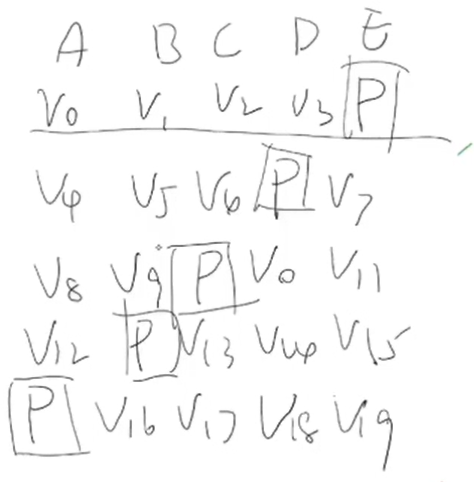 A B C D E
V0 V1 V2 V3 P
V4 V5 V6 P V7
V8 V9 P V0 V11
V12 P V13 V14 V15
P V16 V17 V18 V19